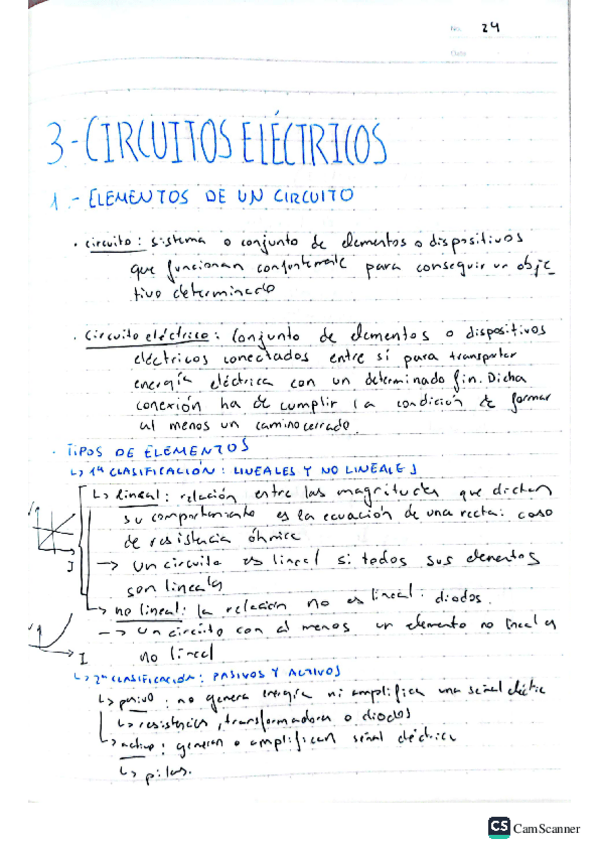 No. 24
Date
3-CIRCUITOS ELÉCTRICOS
1.- ELEMENTOS DE UN CIRCUITO
· circuito: sistema o conjunto de elementos o dispositivos
que funcionan conjuntamente para conseguir un obje
tivo determinado
· Circuito eléctrico: Conjunto de elementos o dispositivos
eléctricos conectados entre sí para transportar
energía eléctrica con un determinado fin. Dicha
conexión ha de cumplir la condición de formar
al menos un camino cerrado.
· TIPOS DE ELEMENTOS
↳ 1ª CLASIFICACIÓN: LINEALES Y NO LINEALES
↳ lineal: relación entre las magnitudes que dictan
su comportamiento es la ecuación de una recta: caso
de resistencia óhmica
→ Un circuito es lineal si todos sus elementos
son lineales
I
↳ no lineal: la relación no es lineal: diodos.
→ Un circuito con al menos un elemento no lineal es
no lineal
V
I
↳ 2ª CLASIFICACIÓN: PASIVOS Y ACTIVOS
↳ pasivo: no genera energía ni amplifica una señal eléctric
↳ resistencias, transformadores o diodos
↳ activo: generan o amplifican señal eléctrica
↳ pilas.
CS CamScanner